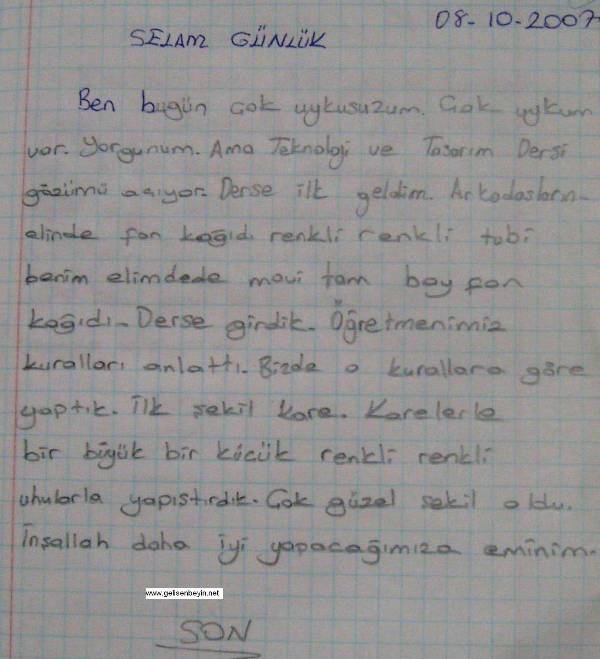 08-10-2007
SELAM GÜNLÜK
Ben bugün çok uykusuzum. Çok uykum
var. Yorgunum. Ama Teknoloji ve Tasarım Dersi
gözümü açıyor. Derse ilk geldim. Arkadaşların-
elinde fon kağıdı renkli renkli tabi
benim elimdede mavi tam boy fon
kağıdı. Derse girdik. Öğretmenimiz
kuralları anlattı. Bizde o kurallara göre
yaptık. İlk şekil kare. Karelerle
bir büyük bir küçük renkli renkli
uhularla yapıştırdık. Çok güzel şekil oldu.
İnşallah daha iyi yapacağımıza eminim.
www.gelisenbeyin.net
SON